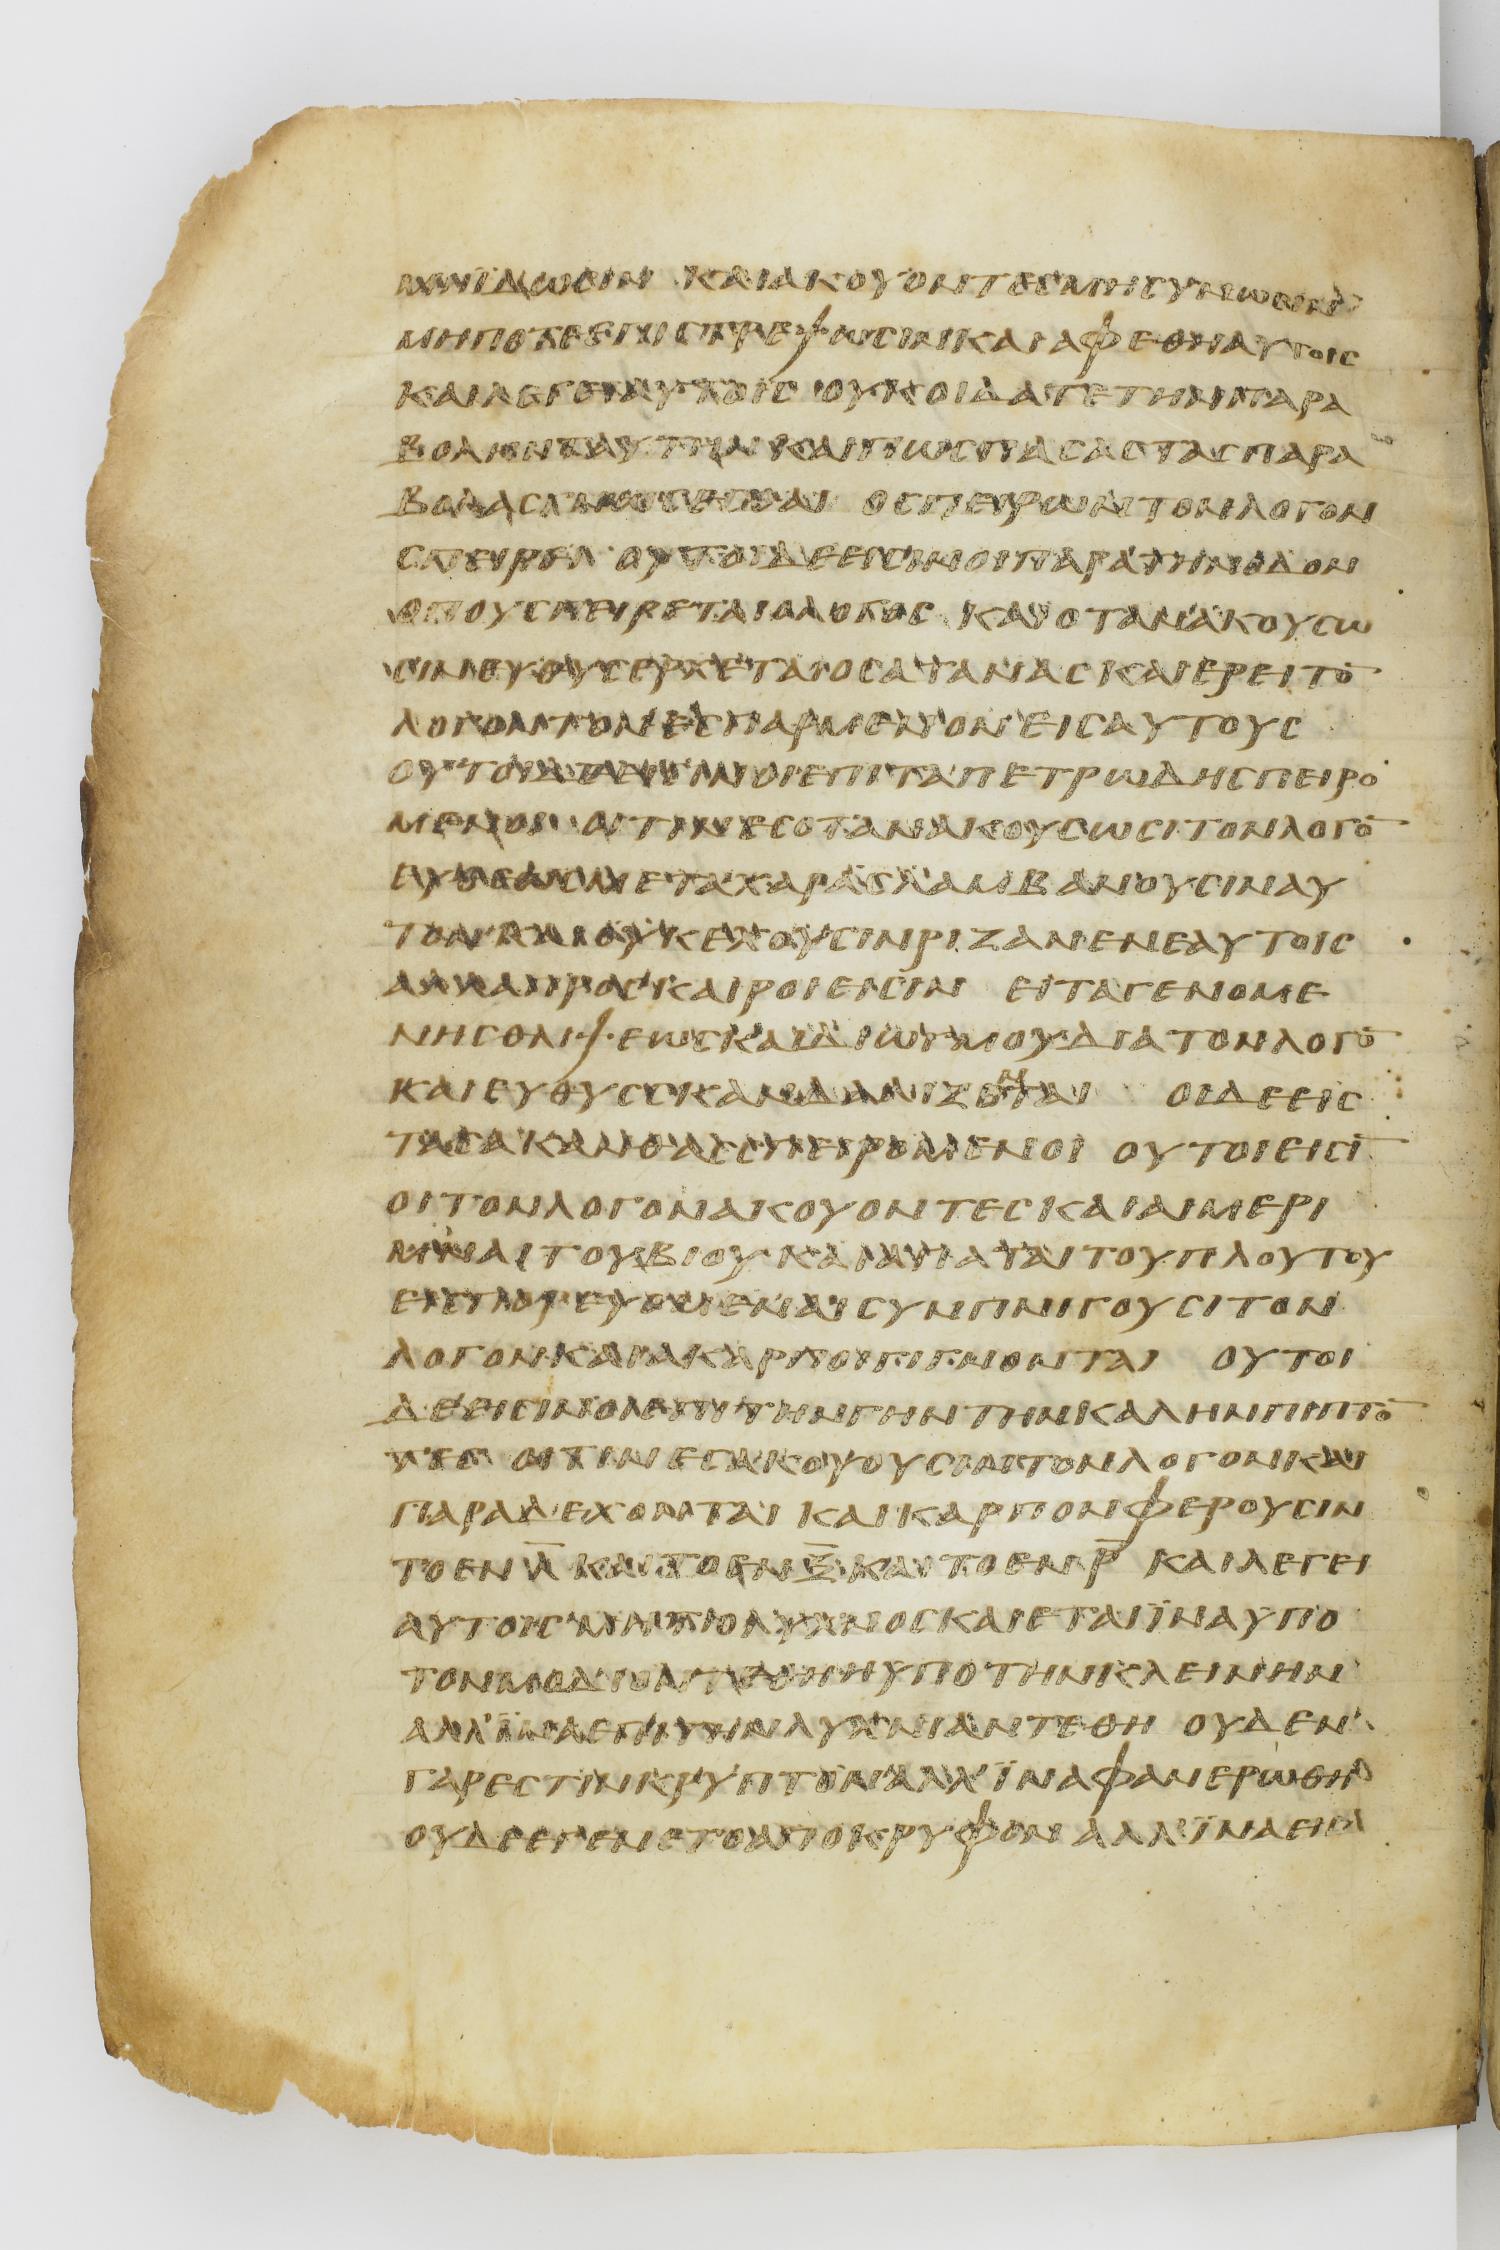 ΜΗΙΔΩCΙΝ ΚΑΙΑΚΟΥΟΝΤΕC ΜΗCΥΝΙΩCΙΝ
ΜΗΠΟΤΕΕΠΙCΤΡΕΨΩCΙΝΚΑΙΑΦΕΘΗΑΥΤΟΙC
ΚΑΙΛΕΓΕΙΑΥΤΟΙC ΟΥΚΟΙΔΑΤΕΤΗΝΠΑΡΑ
ΒΟΛΗΝΤΑΥΤΗΝΚΑΙΠΩCΠΑCΑCΤΑCΠΑΡΑ
ΒΟΛΑC ΟCΠΕΙΡΩΝΤΟΝΛΟΓΟΝ
CΠΕΙΡΕΙ ΟΥΤΟΙΔΕΕΙCΙΝΟΙΠΑΡΑΤΗΝΟΔΟΝ
ΟΠΟΥCΠΕΙΡΕΤΑΙΟΛΟΓΟC ΚΑΙΟΤΑΝΑΚΟΥCΩ
CΙΝΕΥΘΥCΕΡΧΕΤΑΙΟCΑΤΑΝΑCΚΑΙΕΡΕΙΤΟ̅
ΛΟΓΟΝΤΟΝΕCΠΑΡΜΕΝΟΝΕΙCΑΥΤΟΥC
ΟΥΤΟΙ ΕΙCΙΝΟΙΕΠΙΤΑΠΕΤΡΩΔΗCΠΕΙΡΟ
ΜΕΝΟΙ ΟΙΤΙΝΕCΟΤΑΝΑΚΟΥCΩCΙΤΟΝΛΟΓΟ̅
ΕΥΘΕΩCΜΕΤΑΧΑΡΑCΛΑΜΒΑΝΟΥCΙΝΑΥ
ΤΟΝΚΑΙΟΥΚΕΧΟΥCΙΝΡΙΖΑΝΕΝΕΑΥΤΟΙC
ΑΛΛΑΠΡΟCΚΑΙΡΟΙΕΙCΙΝ ΕΙΤΑΓΕΝΟΜΕ
ΝΗCΘΛΙΨΕΩCΚΑΙΔΙΩΓΜΟΥΔΙΑΤΟΝΛΟΓΟ̅
ΚΑΙΕΥΘΥCCΚΑΝΔΑΛΙΖΟΝΤΑΙ ΟΙΔΕΕΙC
ΤΑCΑΚΑΝΘΑCCΠΕΙΡΟΜΕΝΟΙ ΟΥΤΟΙΕΙCΙ̅
ΟΙΤΟΝΛΟΓΟΝΑΚΟΥΟΝΤΕCΚΑΙΑΙΜΕΡΙ
ΜΝΑΙΤΟΥΒΙΟΥΚΑΙΑΠΑΤΑΙΤΟΥΠΛΟΥΤΟΥ
ΕΙCΠΟΡΕΥΟΜΕΝΑΙCΥΝΠΝΙΓΟΥCΙΤΟΝ
ΛΟΓΟΝΚΑΙΑΚΑΡΠΟΙΓΙΓΝΟΝΤΑΙ ΟΥΤΟΙ
ΔΕΕΙCΙΝΟΙΕΠΙΤΗΝΓΗΝΤΗΝΚΑΛΗΝΠΙΠΤΟ̅
ΤΕC ΟΙΤΙΝΕCΑΚΟΥΟΥCΙΝΤΟΝΛΟΓΟΝΚΑΙ
ΠΑΡΑΔΕΧΟΝΤΑΙ ΚΑΙΚΑΡΠΟΝΦΕΡΟΥCΙΝ
ΤΟΕΝΛ̅ΚΑΙΤΟΕΝΞ̅ΚΑΙΤΟΕΝΡ̅ ΚΑΙΛΕΓΕΙ
ΑΥΤΟΙCΜΗΤΙΟΛΥΧΝΟCΚΑΙΕΤΑΙΪΝΑΥΠΟ
ΤΟΝΜΟΔΙΟΝΤΕΘΗΗΥΠΟΤΗΝΚΛΕΙΝΗΝ
ΑΛΛΪΝΑΕΠΙΤΗΝΛΥΧΝΙΑΝΤΕΘΗ ΟΥΔΕΝ
ΓΑΡΕCΤΙΝΚΡΥΠΤΟΝΑΛΛΪΝΑΦΑΝΕΡΩΘΗ
ΟΥΔΕΕΓΕΝΕΤΟΑΠΟΚΡΥΦΟΝΑΛΛΪΝΑΕΙC